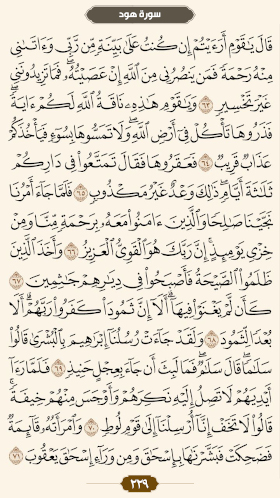 سورة هود
قَالَ يَٰقَوْمِ أَرَءَيْتُمْ إِن كُنتُ عَلَىٰ بَيِّنَةٍ مِّن رَّبِّي وَءَاتَىٰنِي
مِنْهُ رَحْمَةً فَمَن يَنصُرُنِي مِنَ ٱللَّهِ إِنْ عَصَيْتُهُۥ فَمَا تَزِيدُونَنِي
غَيْرَ تَخْسِيرٍ ٦٣ وَيَٰقَوْمِ هَٰذِهِۦ نَاقَةُ ٱللَّهِ لَكُمْ ءَايَةً
فَذَرُوهَا تَأْكُلْ فِيٓ أَرْضِ ٱللَّهِ وَلَا تَمَسُّوهَا بِسُوٓءٍ فَيَأْخُذَكُمْ
عَذَابٌ قَرِيبٌ ٦٤ فَعَقَرُوهَا فَقَالَ تَمَتَّعُوا۟ فِي دَارِكُمْ
ثَلَٰثَةَ أَيَّامٍ ذَٰلِكَ وَعْدٌ غَيْرُ مَكْذُوبٍ ٦٥ فَلَمَّا جَآءَ أَمْرُنَا
نَجَّيْنَا صَٰلِحًا وَٱلَّذِينَ ءَامَنُوا۟ مَعَهُۥ بِرَحْمَةٍ مِّنَّا وَمِنْ
خِزْيِ يَوْمِئِذٍ إِنَّ رَبَّكَ هُوَ ٱلْقَوِيُّ ٱلْعَزِيزُ ٦٦ وَأَخَذَ ٱلَّذِينَ
ظَلَمُوا۟ ٱلصَّيْحَةُ فَأَصْبَحُوا۟ فِي دِيَٰرِهِمْ جَٰثِمِينَ ٦٧
كَأَن لَّمْ يَغْنَوْا۟ فِيهَآ أَلَآ إِنَّ ثَمُودَا۟ كَفَرُوا۟ رَبَّهُمْ أَلَا
بُعْدًا لِّثَمُودَ ٦٨ وَلَقَدْ جَآءَتْ رُسُلُنَآ إِبْرَٰهِيمَ بِٱلْبُشْرَىٰ قَالُوا۟
سَلَٰمًا قَالَ سَلَٰمٌ فَمَا لَبِثَ أَن جَآءَ بِعِجْلٍ حَنِيذٍ ٦٩ فَلَمَّا رَءَآ
أَيْدِيَهُمْ لَا تَصِلُ إِلَيْهِ نَكِرَهُمْ وَأَوْجَسَ مِنْهُمْ خِيفَةً
قَالُوا۟ لَا تَخَفْ إِنَّآ أُرْسِلْنَآ إِلَىٰ قَوْمِ لُوطٍ ٧٠ وَٱمْرَأَتُهُۥ قَآئِمَةٌ
فَضَحِكَتْ فَبَشَّرْنَٰهَا بِإِسْحَٰقَ وَمِن وَرَآءِ إِسْحَٰقَ يَعْقُوبَ ٧١
٢٢٩